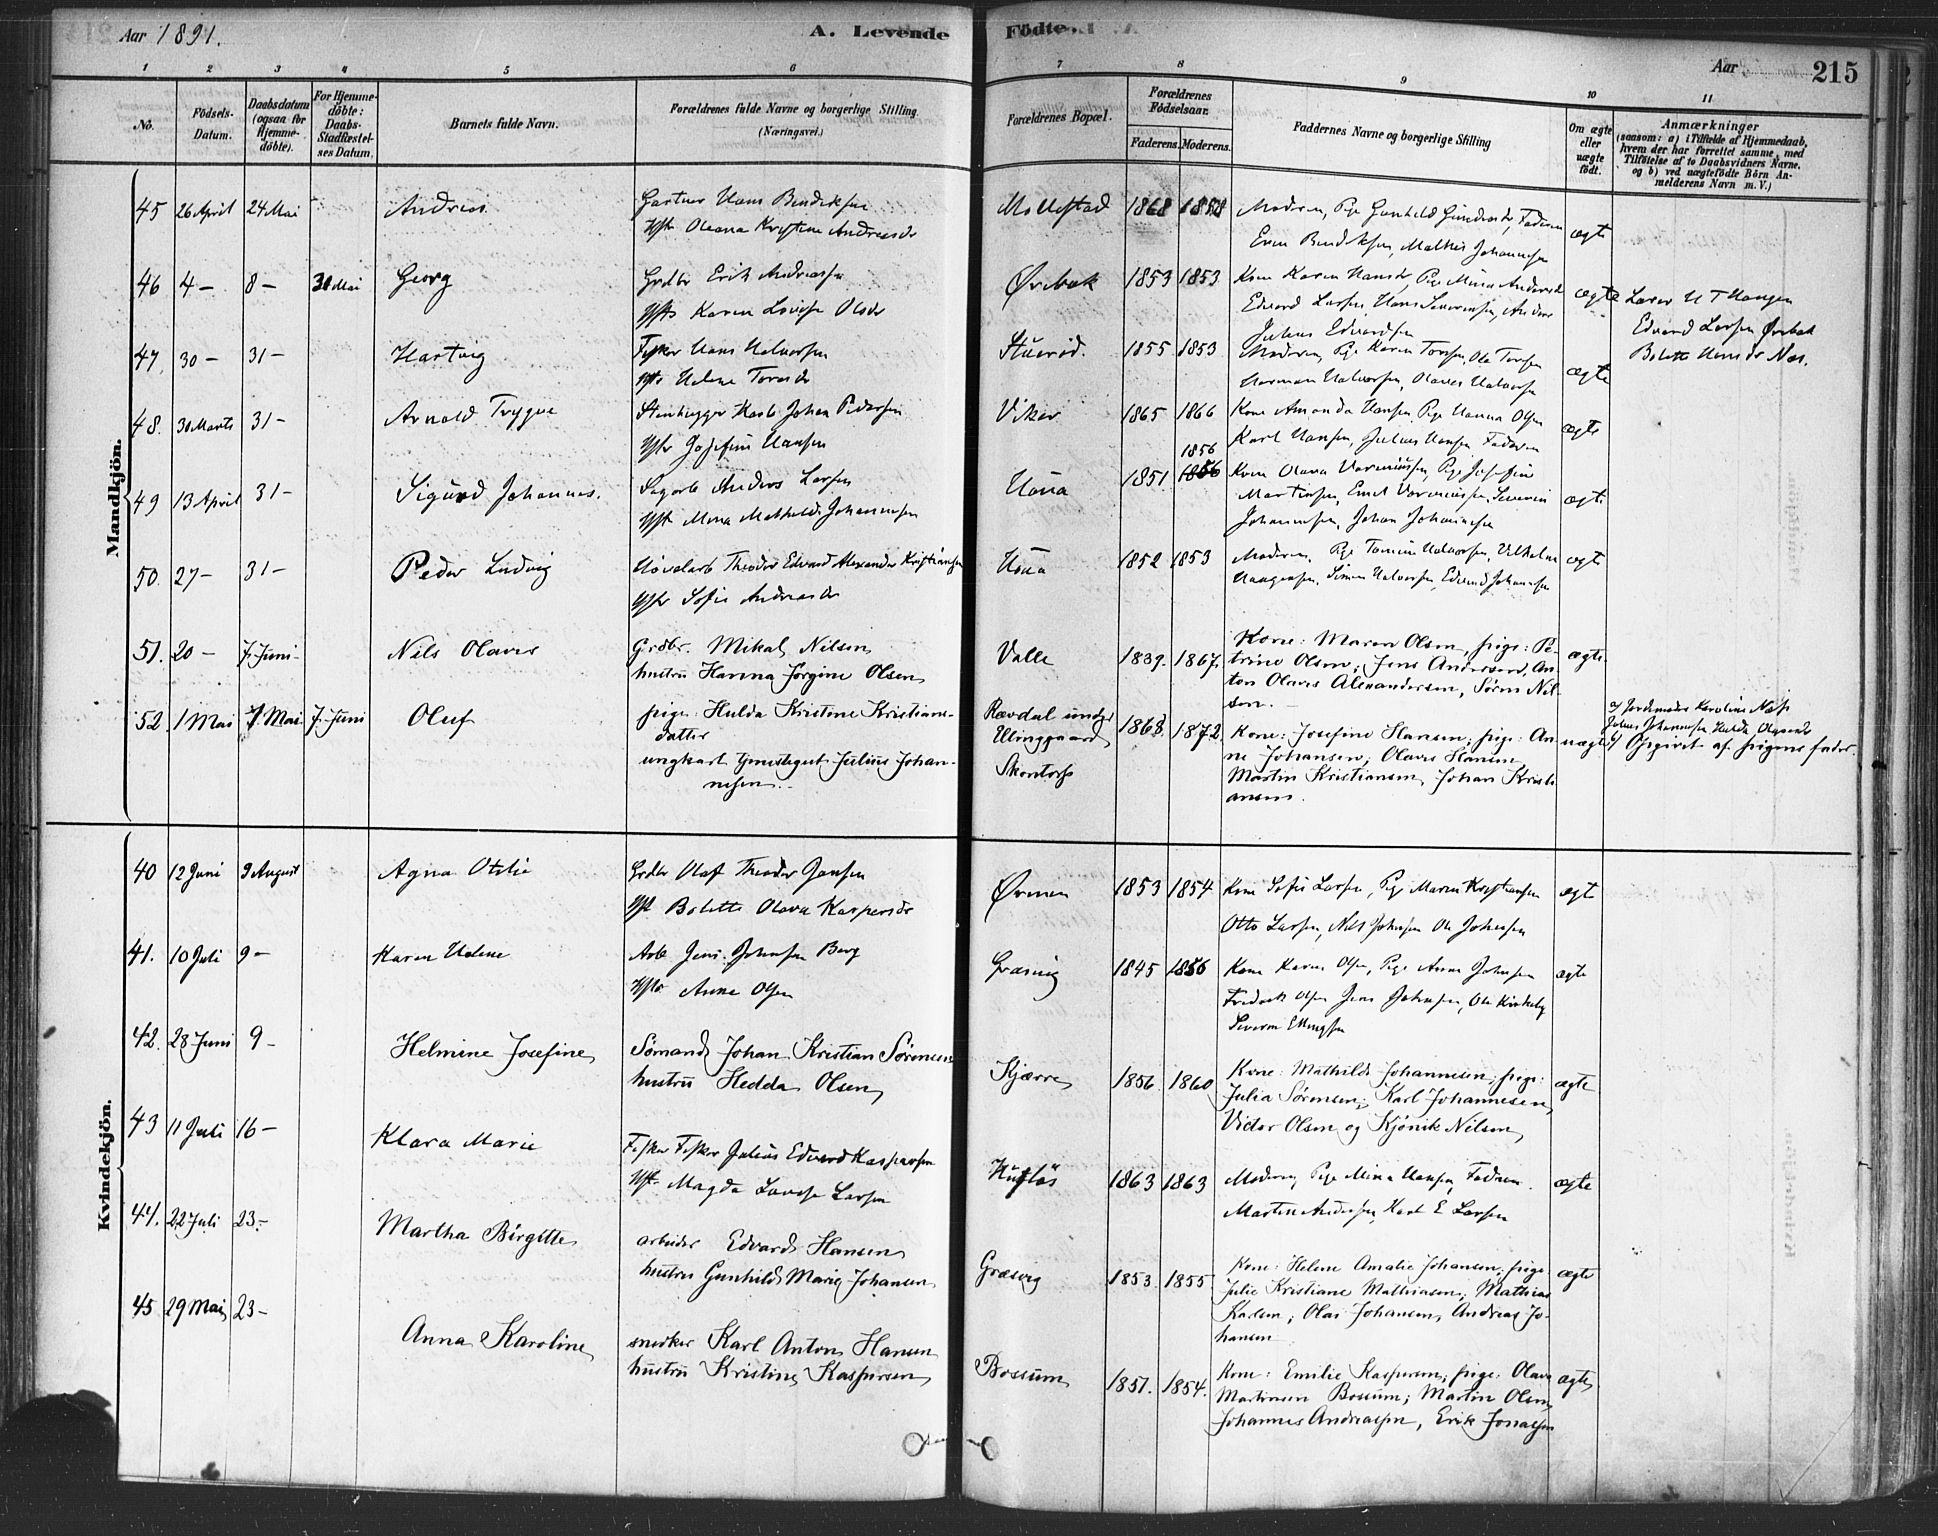 Aar 1891.
A. Levende
Födte.
Aar
215
1 2 3 4 5 6 7 8 9 10 11
No.
Födsels-
Datum.
Daabsdatum
(ogsaa for
Hjemme-
döbte).
For Hjemme-
döbte:
Daabs-
Stadfæstel-
ses Datum.
Barnets fulde Navn.
Forældrenes fulde Navne og borgerlige Stilling
(Næringsvei.)
Forældrenes Bopæl.
Forældrenes
Födselsaar.
Faderens. Moderens.
Faddernes Navne og borgerlige Stilling
Om ægte
eller
uægte
født.
Anmærkninger
(saasom: a) i Tilfælde af Hjemmedaab,
hvem der har forrettet samme, med
Tilføielse af to Daabsvidners Navne.
og b) ved uægtefødte Börn An-
melderens Navn m. V.)
Mandkjön.
45 26 April 24 Mai Andreas
Gartner Hans Bendiksen
Hstr Oleana Kristine Andreasdr
Møllestad 1868 1858
Moderen, Pige Gunhild Gundersdr, Faderen
Even Bendiksen, Mathis Johannesen
ægte
46 4 – 8 – 31 Mai Georg
Grdbr Erik Andreassen
Hstr Karen Lovise Olsdr
Ørebæk 1853 1853
Kone Karen Hansdr, Pige Mina Andersdr
Edvard Larsen, Hans Severinsen, Anders
Julius Edvardsen
ægte
Lærer H T Haugen
Edvard Larsen Ørebæk
Bolette Hansdr Næs.
47 30 – 31 – Hartvig
Fisker Hans Halvorsen
Hstr Helene Toresdr
Stuerød. 1855 1853
Moderen, Pige Karen Torsen, Ole Torsen
Herman Halvorsen, Olaves Halvorsen
ægte
48. 30 Marts 31 – Arnold Trygve
Stenhugger Karl Johan Pedersen
Hstr Josefine Hansen
Viker 1865 1866
Kone Amanda Hansen Pige Hanna Olsen
Karl Hansen, Julius Hansen Faderen
ægte
49 13 April 31 – Sigurd Johannes.
Sagarb Anders Larsen
Hstr Mina Mathilde Johannesen
Huna 1851 1856 1856
Kone Olava Verniussen, Pige Josefine
Martinsen, Emil Verniussen, Severin
Johannesen, Johan Johannesen
ægte
50. 27 – 31 – Peder Ludvig
Høvelarb Theodor Edvard Alexander Kristiansen
Hstr Sofie Andreasdr
Huna 1852 1853
Moderen, Pige Tomine Halvorsen, Vilhelm
Haagensen, Simen Halvorsen, Edvard Johannesen
ægte
51. 20 – 7. Juni – Nils Olaves
Grdbr. Mikal Nilsen
hustru Hanna Jørgine Olsen
Valle 1839. 1867.
Kone: Maren Olsen, pige: Pe-
trine Olsen; Jens Andersen, An-
ton Olaves Alexandersen, Søren Nil-
sen. –
ægte
52. 1 Mai 7 Mai 7. Juni Oluf
pige: Hulda Kristine Kristians-
datter
ungkarl tjenestegut Julius Johan-
nesen. –
Rævdal under
Ellinggaard
Skontorp
1868 1872
Kone: Josefine Hansen; pige: An-
ne Johansen; Olaves Hansen
Martin Kristiansen, Johan Kristi-
ansen.
uægte
a/ Jordemoder Karoline Næss
Julius Johannessen, Hulda Olavesdr
b/ Opgivet af pigens fader.
Kvindekjön.
40 12 Juni 9 August Agna Otilie
Grdbr Olaf Theodor Jansen
Hst Bolette Olava Kaspersdr
Ørmen 1853 1854
Kone Sofie Larsen, Pige Maren Kristiansen
Otto Larsen, Nils Johnsen Ole Johansen
ægte
41. 10 Juli 9 – Karen Helene
Arb Jens Johnsen Berg
Hstr Anne Olsen
Græsvig 1845 1856
Kone Karen Olsen, Pige Anne Johnsen
Fredrik Olsen Jens Johnsen, Ole Kirkeby
Severin Ellingsen
ægte
42. 28 Juni 9 – Helmine Josefine
Sømand Johan Kristian Sørensen
hustru Hedda Olsen
Kjærre 1856. 1860
Kone: Mathilde Johannesen; pige:
Julia Sørensen; Karl Johannesen,
Victor Olsen og Kjønik Nilsen,
ægte
43 11 Juli 16 – Klara Marie
Fisker Fisker Julius Edvard Kaspersen
Hst. Magda Lovise Larsen
Husløs 1863 1863
Moderen, Pige Mina Hansen, Faderen.
Martin Andersen, Karl E Larsen
ægte
44. 22 Juli 23. – Martha Birgitte
arbeider Edvard Hansen
hustru Gunhild Marie Johansen
Græsvig 1853. 1855
Kone: Helene Amalie Johansen; pige:
Julie Kristiane Mathiasen; Mathias
Karlsen; Olai Johansen, Andreas Jo-
hansen
ægte
45 29 Mai 23 – Anna Karoline
snedker Karl Anton Hansen
hustru Kristine Kaspersen
Bossum 1851. 1854.
Kone: Emilie Kaspersen; pige: Olava
Martinsen Bossum; Martin Olsen,
Johannes Andreassen, Erik Jonassen
ægte